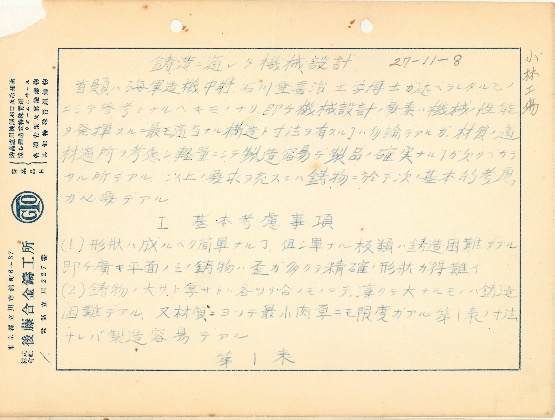 鋳造ニ適シタ機械設計
27-11-8
小林工場
首題ハ海軍造機中将 石川登喜治工学博士ガ述ベラレタルモノ
ニシテ参考トナルベキモノナリ、即チ機械設計ノ要素ハ機械ノ性能
ヲ発揮スル最モ適当ナル構造ト寸法ヲ有スルコトハ勿論デアルガ、材質ヲ適
材適所ヲ考慮シ軽量ニシテ製造容易デ製品ノ確実ナル事ガ欠クベカラ
ザル所デアル、以上ノ要求ヲ充スニハ鋳物ニ於テ次ノ基本的考慮
ガ必要デアル
I 基本考慮事項
(1) 形状ハ成ルベク簡単ナル事、但シ単ナル板類ハ鋳造困難デアル
即チ廣キ平面ノミノ鋳物ハ歪ガ多クテ精確ノ形状ガ得難イ
(2) 鋳物ノ大サト厚サトハ各々ツリ合ノモノニテ、薄クテ大ナルモノハ鋳造
困難デアル、又材質ニヨッテ最小肉厚ニモ限度ガアル 第1表ノ寸法
ナレバ製造容易デアル
第1表
GTO
株式会社 後藤合金鑄工所
電話立川227番